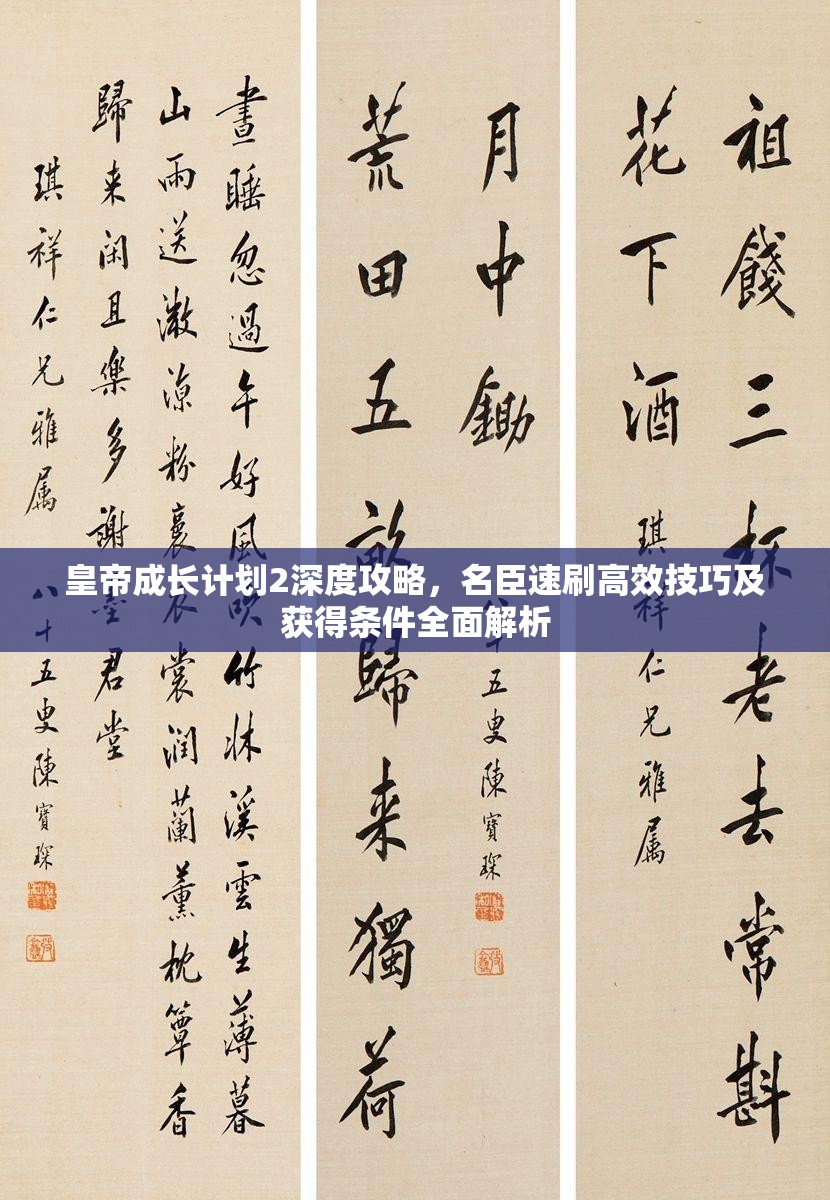 皇帝成长计划2深度攻略，名臣速刷高效技巧及
获得条件全面解析
祖餞三杯老去常斟
花下酒
琪祥仁兄雅属
荒田五畝歸来獨荷
月中鋤
八十五叟陳寶琛
晝睡忽過午好風吹竹牀溪雲生薄暮
山雨送微涼粉裛衣裳潤蘭薰枕簟香
歸来闲且樂多謝墨君堂
琪祥仁兄雅属八十五叟陳寶琛